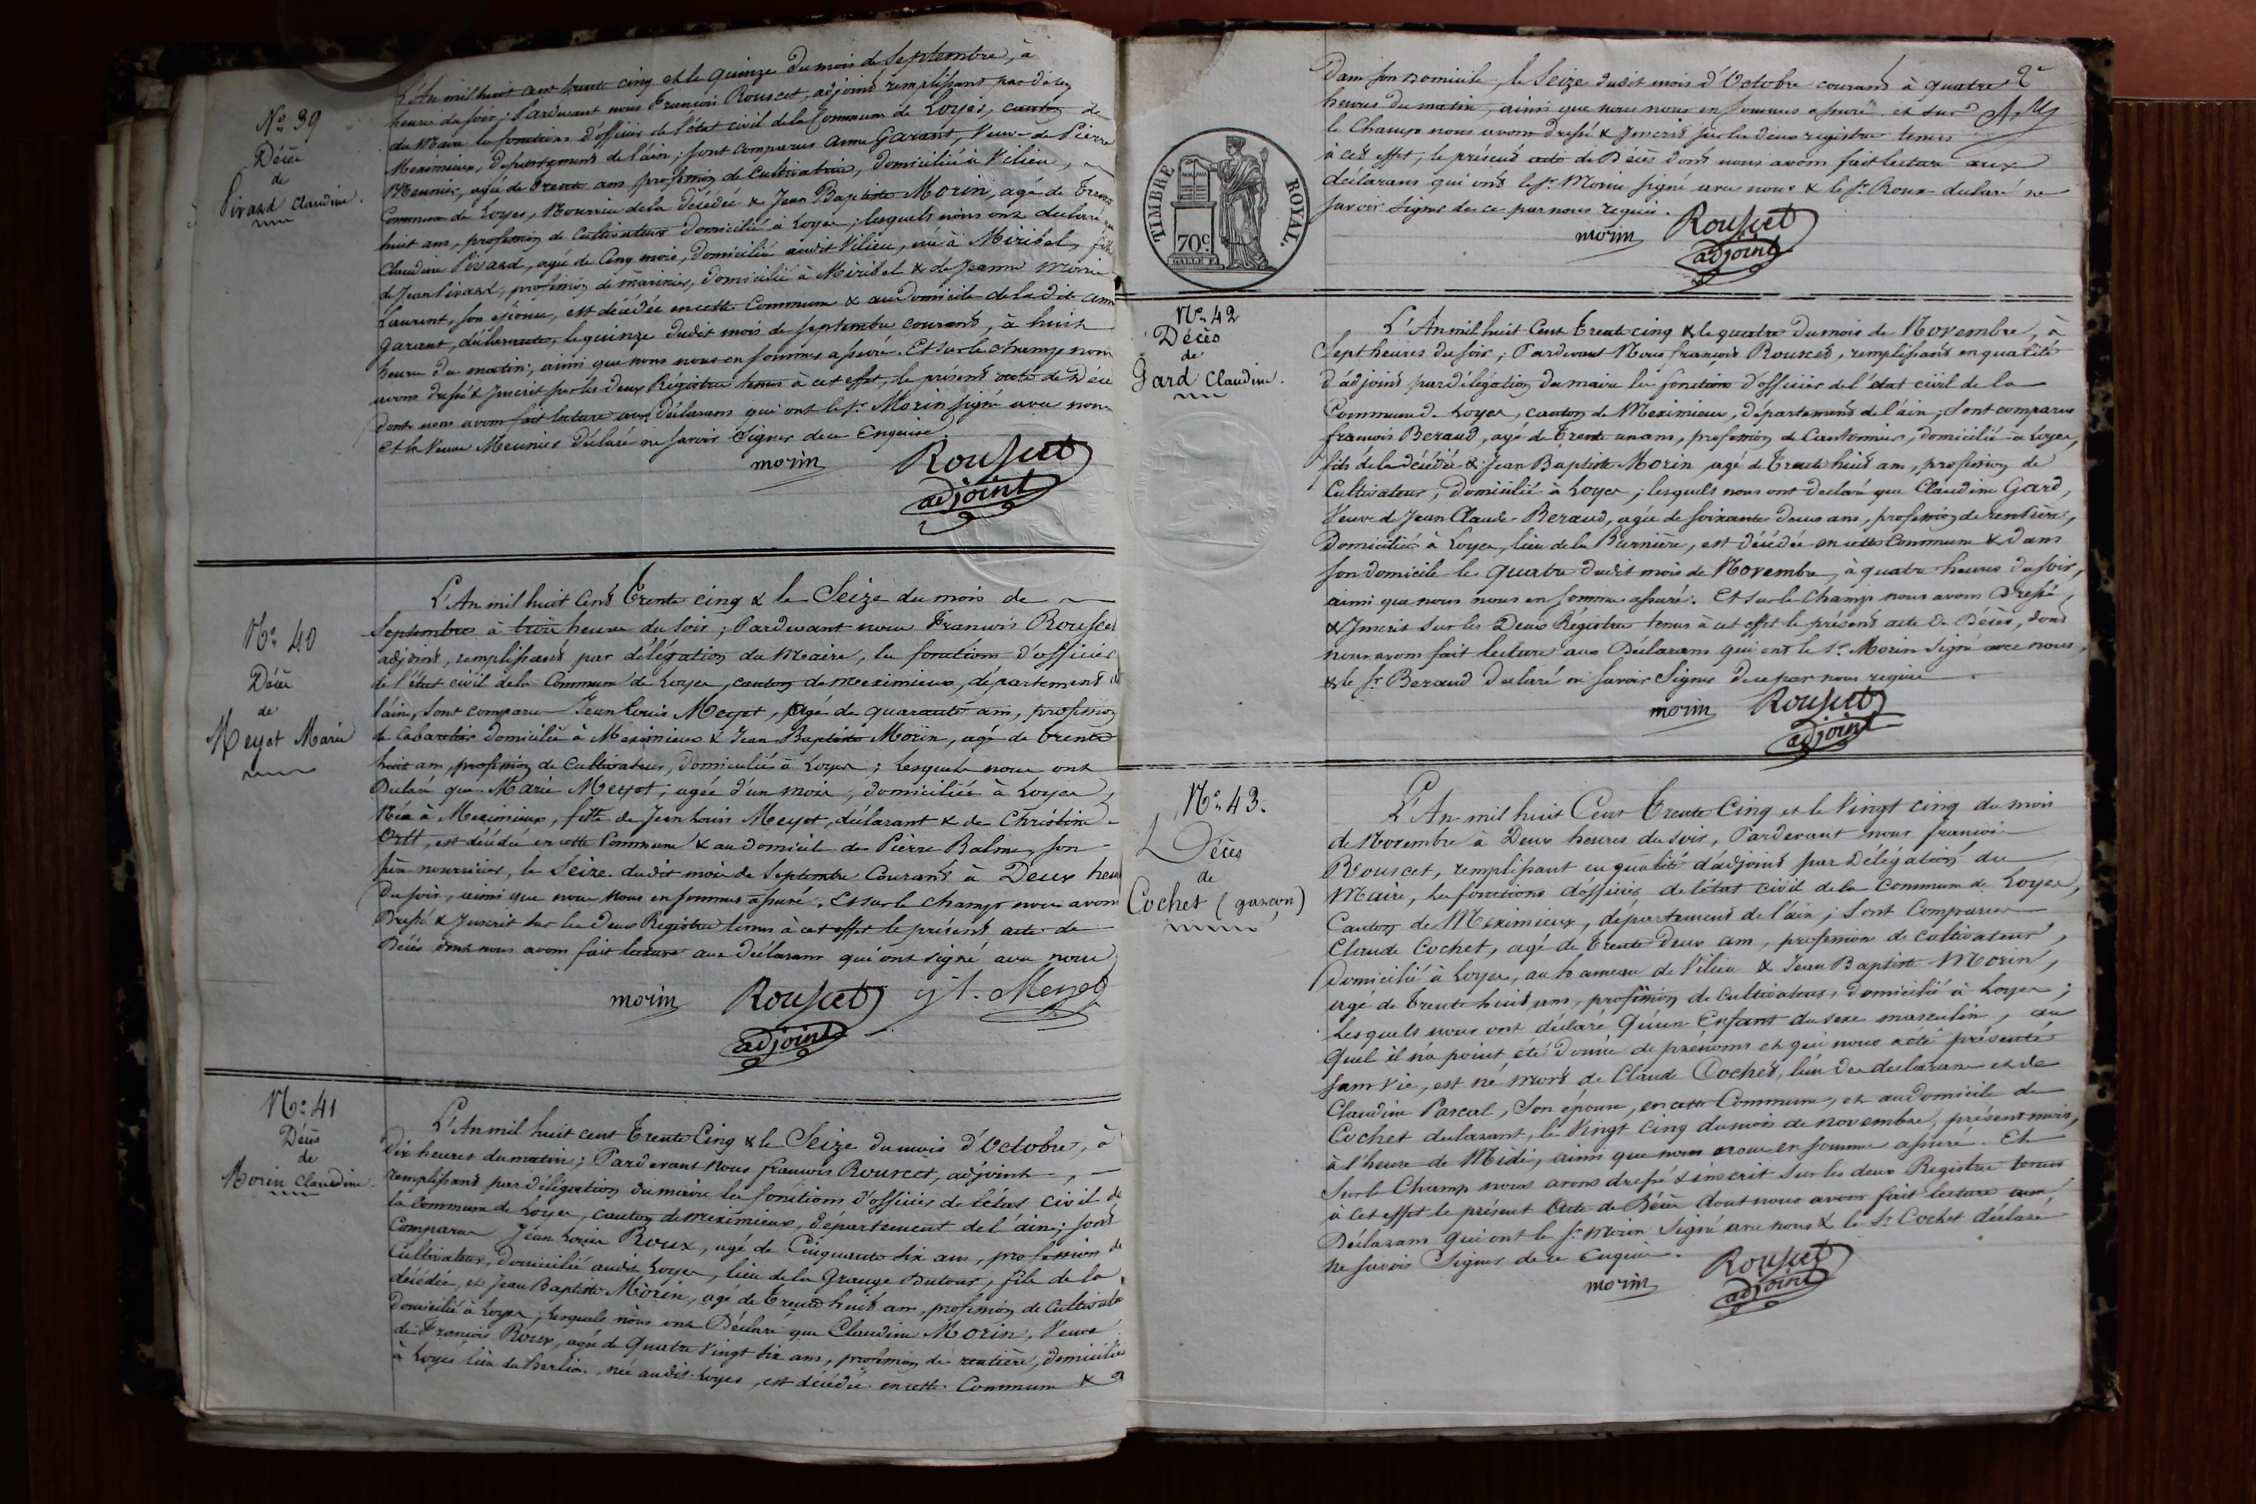 Nº 39
Décès
de
Pivard Claudine.
L'An mil huit cent trente cinq et le quinze du mois de Septembre, à
heure du soir; Pardevant nous François Rouscet, adjoint remplissant par déleg
du Maire les fonctions d'officier de l'état civil de la Commune de Loyes, canton de
Meximieux, département de l'ain; sont comparus Anne Garant, Veuve de Pierre
Meunier, agée de trente ans profession de cultivatrice, domiciliée à Vilieu,
Commune de Loyes, Nourrice de la décédée & Jean Baptiste Morin, agé de trente
huit ans, profession de Cultivateur domicilié à Loyes; lesquels nous ont declaré que
Claudine Pivard, agée de Cinq mois, domiciliée audit Vilieu, née à Miribel, fille
de Jean Pivard, profession de marinier, domicilié à Miribel & de Jeanne Marie
Laurent, son épouse, est décédée en cette Commune & au domicile de la dite anne
garant, déclarante, le quinze dudit mois de septembre courant, à huit
heure du matin; ainsi que nous nous en sommes assuré. Et sur le champ nous
avons dressé & Inscrit sur les deux Régistres tenus à cet effet, le présent acte de Décès
dont nous avons fait lecture aux déclarans qui ont le Sr. Morin signé avec nous
et la Veuve Meunier déclaré ne savoir Signer de ce Enquise
morin Rouscet
adjoint
Nº 40
Décès
de
Meyet Marie
L'An mil huit Cent Trente cinq & le Seize du mois de
Septembre à trois heure du soir; Pardevant nous François Rouscet
adjoint, remplissant par délégation du Maire, les fonctions d'officier
de l'état civil de la Commune de Loyes, canton de meximieux, département de
l'ain, sont comparu Jean Louis Meyet, agé de quarante ans, profession
de Cabaretier domicilié à Meximieux & Jean Baptiste Morin, agé de trente
huit ans, profession de Cultivateur, domicilié à Loyes; Lesquels nous ont
Declaré que Marie Meyet, agée d'un mois, domiciliée à Loyes,
Née à Meximieux, fille de Jean Louis Meyet, déclarant & de Christine
Ortt, est décédée en cette Commune & au domicile de Pierre Balme, son
père nourricier, le Seize dudit mois de Septembre Courant à Deux heures
du soir, ainsi que nous nous en sommes assuré. Et sur le champ nous avons
Dressé & Inscrit sur les deux Registres tenus à cet effet le présent acte de
Décès dont nous avons fait lecture aux déclarans qui ont signé avec nous
morin Rouscet J L. Meyet
adjoint
Nº 41
Décès
de
Morin Claudine.
L'An mil huit cent trente Cinq & le Seize du mois d'Octobre, à
Dix heures du matin; Pardevant Nous françois Rouscet, adjoint,
remplissant par délégation du maire les fonctions d'officier de l'état civil de
la Commune de Loyes, canton de meximieux, département de l'ain; sont
Comparus Jean Louis Roux, agé de Cinquante six ans, profession de
Cultivateur, domicilié audit Loyes, lieu de la Grange Dutour, fils de la
décédée, et Jean Baptiste Morin, agé de trente huit ans, profession de Cultivateur
domicilié à Loyes; lesquels nous ont Déclaré que Claudine Morin, Veuve
de François Roux, agée de Quatre Vingt six ans, profession de rentière, domiciliée
à Loyes lieu du née audit Loyes, est décédée en cette Commune & D
2e
Dans son domicile, le Seize dudit mois d'Octobre courant à quatre
heures du matin, ainsi que nous nous en sommes assuré et sur
le Champ nous avons dressé & Inscrit sur les deux registres tenus
à cet effet, le présent acte de Décès dont nous avons fait lecture aux
déclarans qui ont le Sr. Morin signé avec nous & le Sr. Roux declaré ne
savoir signer de ce par nous requis.
morin Rouscet
adjoint
TIMBRE ROYAL.
70c.
GALLE F.
Nº 42
Décès
de
Gard Claudine.
L'An mil huit Cent Trente cinq & le quatre du mois de Novembre, à
Sept heures du soir; Pardevant Nous françois Rouscet, remplissant en qualité
d'adjoint par délégation du maire les fonctions d'officier de l'état civil de la
Commune de Loyes, canton de Meximieux, département de l'ain; sont comparus
françois Beraud, agé de trente un ans, profession de Cantonnier, domicilié à Loyes,
fils de la décédée & Jean Baptiste Morin agé de trente huit ans, profession de
Cultivateur, domicilié à Loyes; lesquels nous ont declaré que Claudine Gard,
Veuve de Jean Claude Beraud, agée de soixante deux ans, profession de rentière,
Domiciliée à Loyes, lieu de la Burnière, est décédée en cette Commune & dans
son domicile le quatre dudit mois de Novembre, à quatre heures du soir,
ainsi que nous nous en sommes assuré. Et sur le champ nous avons Dressé,
& Inscrit sur les Deux Régistres tenus à cet effet le présent acte de Décès, dont
nous avons fait lecture aux Déclarans qui ont le Sr. Morin signé avec nous,
& le Sr. Beraud declaré ne savoir Signer de ce par nous requis.
morin Rouscet
adjoint
Nº 43.
Décès
de
Cochet (garçon)
L'An mil huit Cent Trente Cinq et le Vingt cinq du mois
de Novembre à Deux heures du soir, Pardevant nous françois
Rouscet, remplissant en qualité d'adjoint par Délégation du
Maire, les fonctions d'officier de l'état civil de la Commune de Loyes,
Canton de Meximieux, département de l'ain; Sont Comparus
Claude Cochet, agé de trente deux ans, profession de cultivateur,
Domicilié à Loyes, au hameau de Vilieu & Jean Baptiste Morin,
age de trente huit ans, profession de cultivateur, domicilié à Loyes;
Lesquels nous ont déclaré Qu'un Enfant du sexe masculin, au
Quel il n'a point été donné de prénoms et qui nous a été présenté
sans vie, est né mort de Claude Cochet, l'un des declarans et de
Claudine Pascal, Son épouse, en cette Commune, et au domicile de
Cochet declarant, le Vingt cinq du mois de novembre, présent mois,
à l'heure de Midi, ainsi que nous nous en sommes assuré. Et
Sur le Champ nous avons dressé & inscrit sur les deux Registres tenus
à cet effet le présent Acte de Décès dont nous avons fait lecture aux
Déclarans Qui ont le Sr. Morin Signé avec nous & le Sr. Cochet déclaré
ne savoir Signer de ce Enquis.
morin Rouscet
adjoint